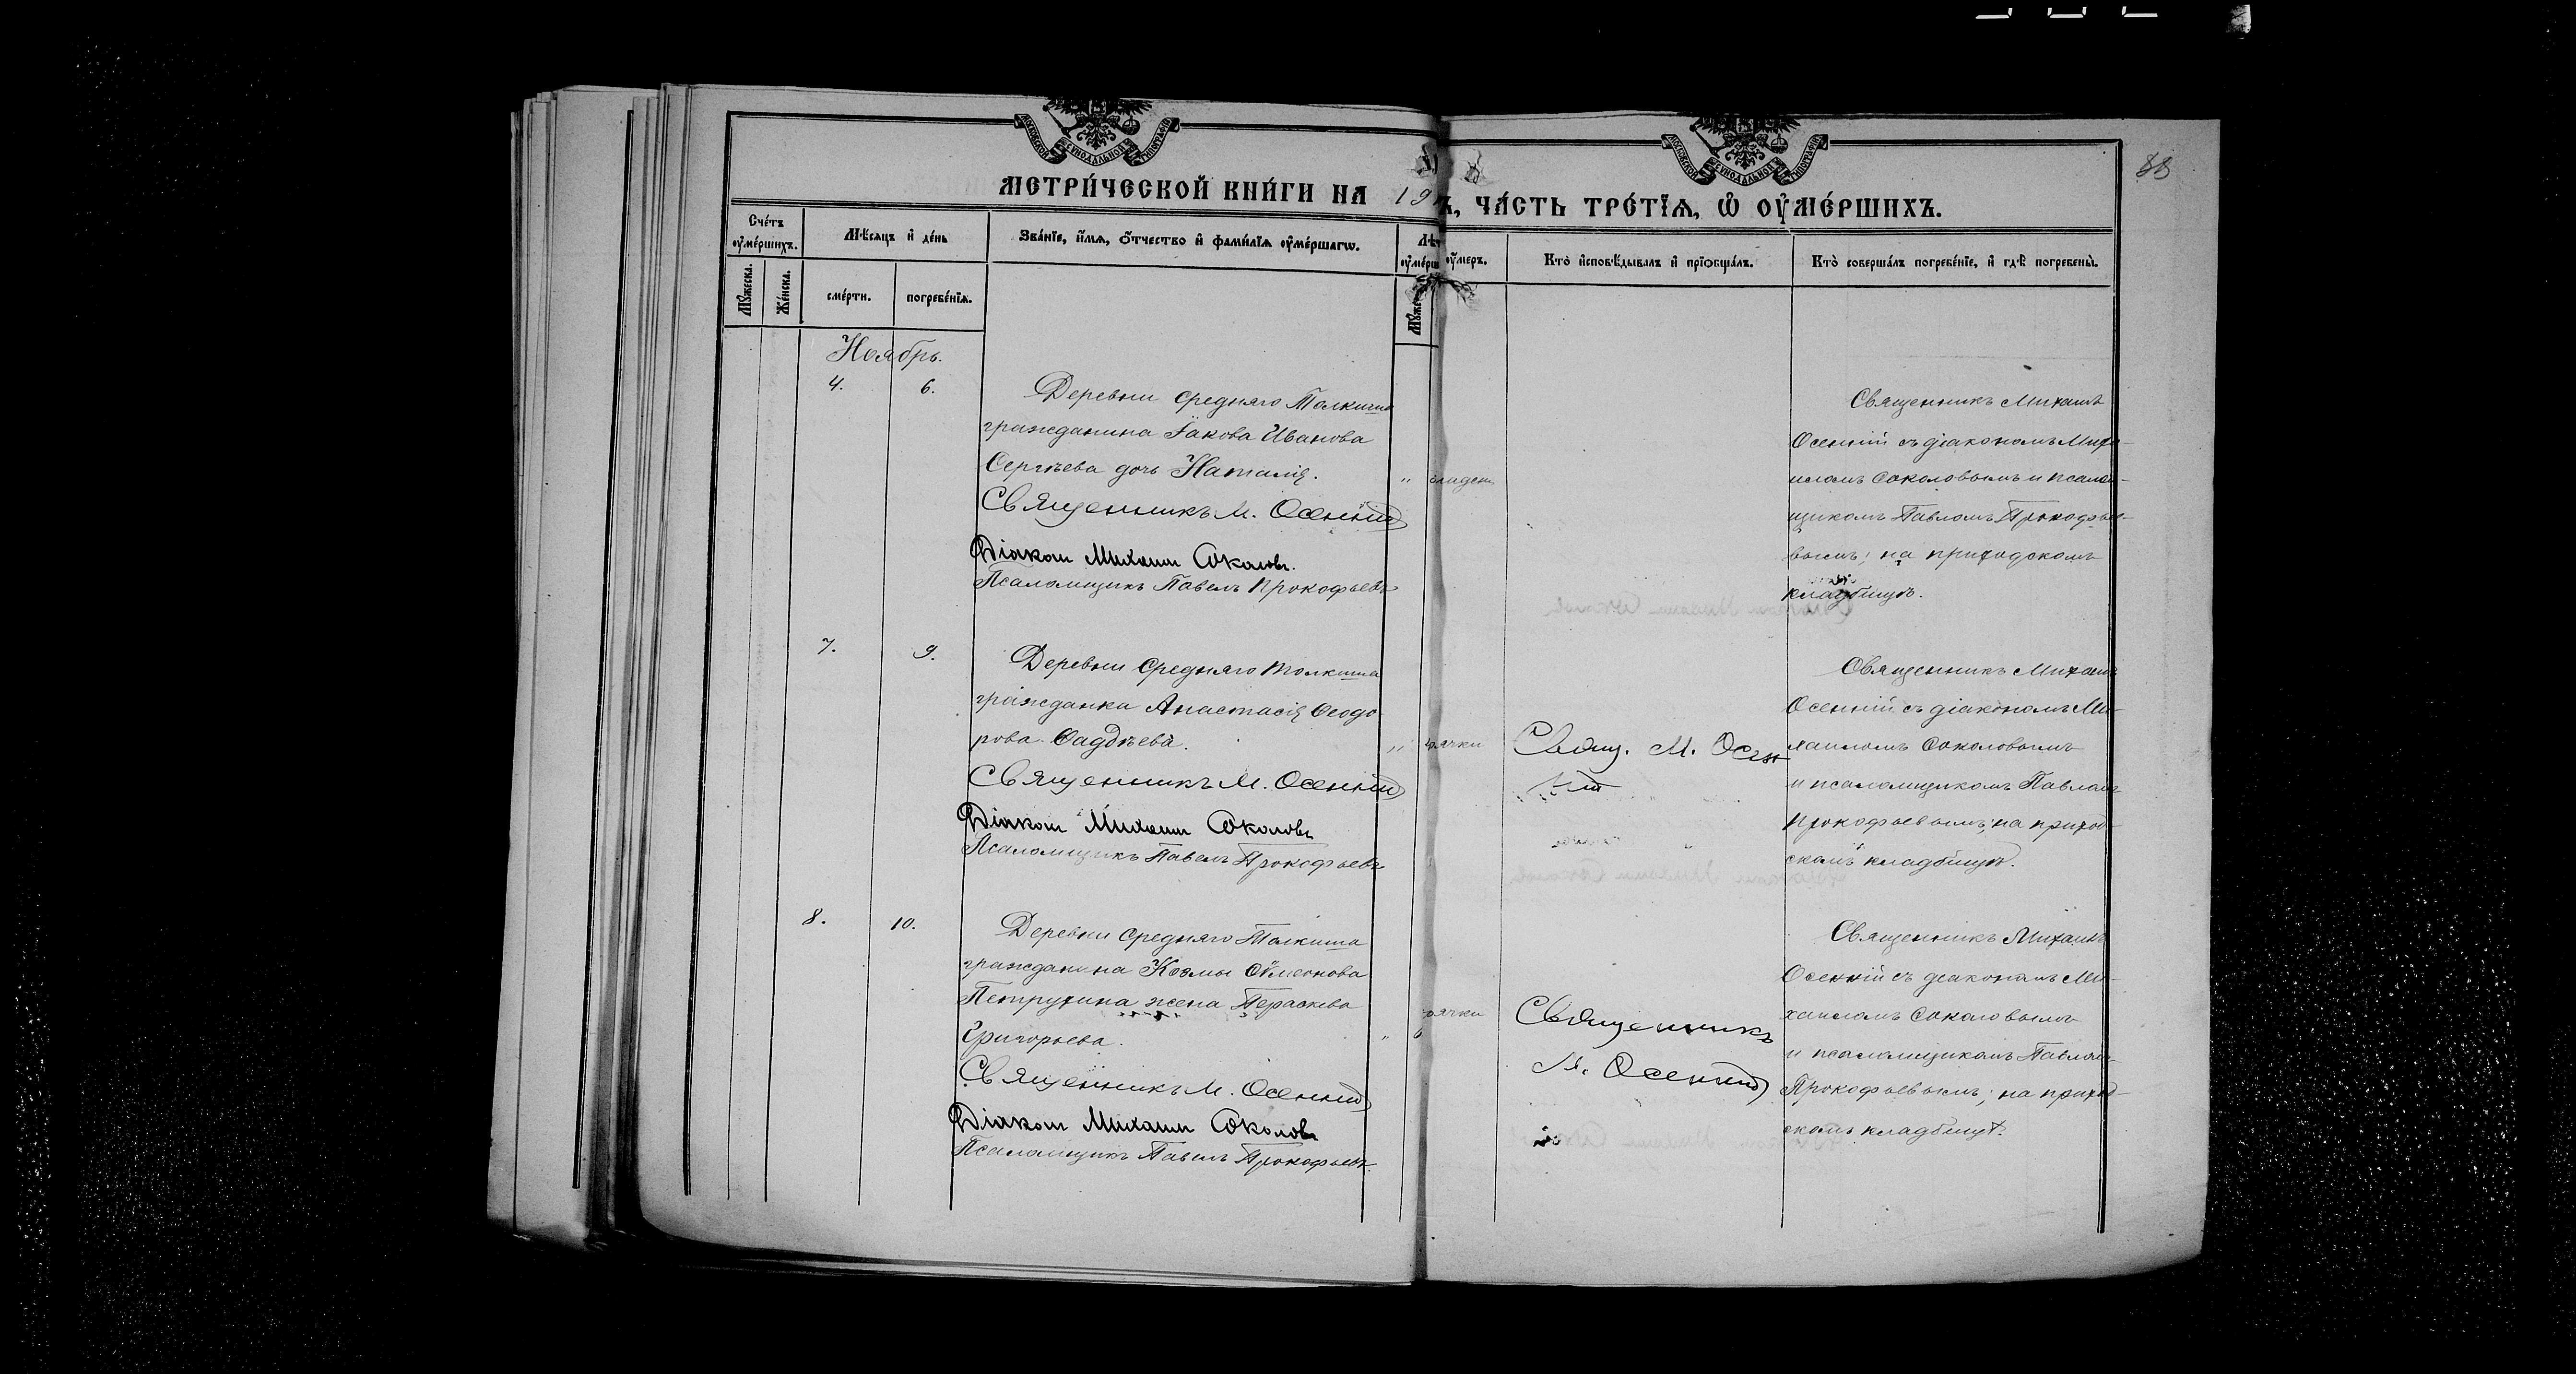 МОСКОВСКОЙ СѴНОДАЛЬНОЙ ТИПОГРАФІИ
МОСКОВСКОЙ СѴНОДАЛЬНОЙ ТИПОГРАФІИ
МЕТРИ́ЧЕСКОЙ КНИ́ГИ НА 19
Ъ, ЧА́СТЬ ТРЕ́ТЇѦ, Ѡ҆ ОУ҆МЕ́РШИХЪ.
88
Сче́тъ оу҆ме́ршихъ.
Мѣ́сяцъ и҆ де́нь
Зва́нїе, и҆́мѧ, ѻ҆́тчество и҆ фами́лїѧ оу҆ме́ршагѡ.
оу҆́меръ.
Кто̀ и҆сповѣ́дывалъ и҆ прїобща́лъ.
Кто̀ соверша́лъ погребе́нїе, и҆ гдѣ̀ погребены̀.
Мꙋ́жеска.
Же́нска.
сме́рти.
погребе́нїѧ.
Ноябрь.
4.
6.
Деревни Средняго Толкиша
гражданина Іакова Иванова
Сергѣева дочь Наталія.
Священникъ М. Осенній
Діаконъ Михаилъ Соколовъ.
Псаломщикъ Павелъ Прокофьевъ
Священникъ Михаилъ
Осенній съ діакономъ Миха-
иломъ Соколовымъ и псалом-
щикомъ Павломъ Прокофье-
вымъ; на приходскомъ
кладбищѣ.
7.
9.
Деревни Средняго Толкиша
гражданка Анастасія Ѳеодо
рова Фадѣева.
Священникъ М. Осенній
Діаконъ Михаилъ Соколовъ
Псаломщикъ Павелъ Прокофьевъ
" рячки
Свящ. М. Осен
ній
Священникъ Михаилъ
Осенній съ діакономъ Ми-
хаиломъ Соколовымъ
и псаломщикомъ Павломъ
Прокофьевымъ; на приход-
скомъ кладбищѣ.
8.
10.
Деревни Средняго Толкиша
гражданина Козмы Сѵмеонова
Петрухина жена Параскева
Григорьева.
Священникъ М. Осенній
Діаконъ Михаилъ Соколовъ
Псаломщикъ Павелъ Прокофьевъ
рячки
Священникъ
М. Осенній
Священникъ Михаилъ
Осенній съ діакономъ Ми-
хаиломъ Соколовымъ
и псаломщикомъ Павломъ
Прокофьевымъ; на приход-
скомъ кладбищѣ.